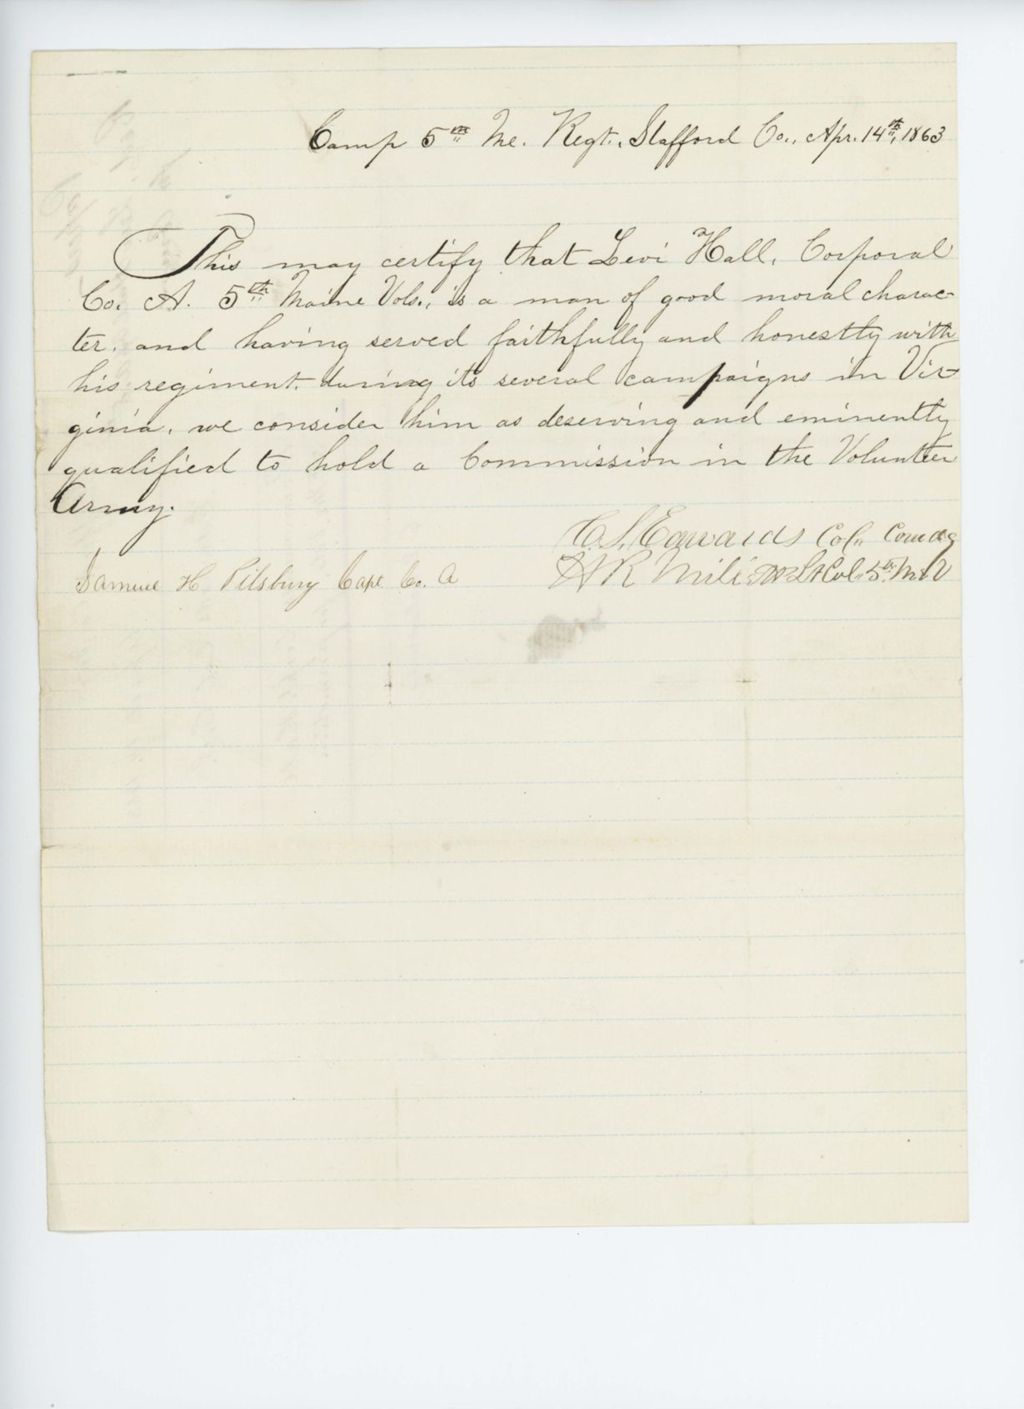 Camp 5th Me. Regt., Stafford Co., Apr. 14th, 1863
This may certify that Levi Hall, Corporal
Co. A. 5th Maine Vols., is a man of good moral charac-
ter, and having served faithfully and honestly with
his regiment, during its several campaigns in Vir-
ginia, we consider him as deserving and eminently
qualified to hold a Commission in the Volunteer
Army.
C. S. Edwards Col. Comdg
Samuel H Pilsbury Capt Co. A
H R Millett Lt Col 5th M V